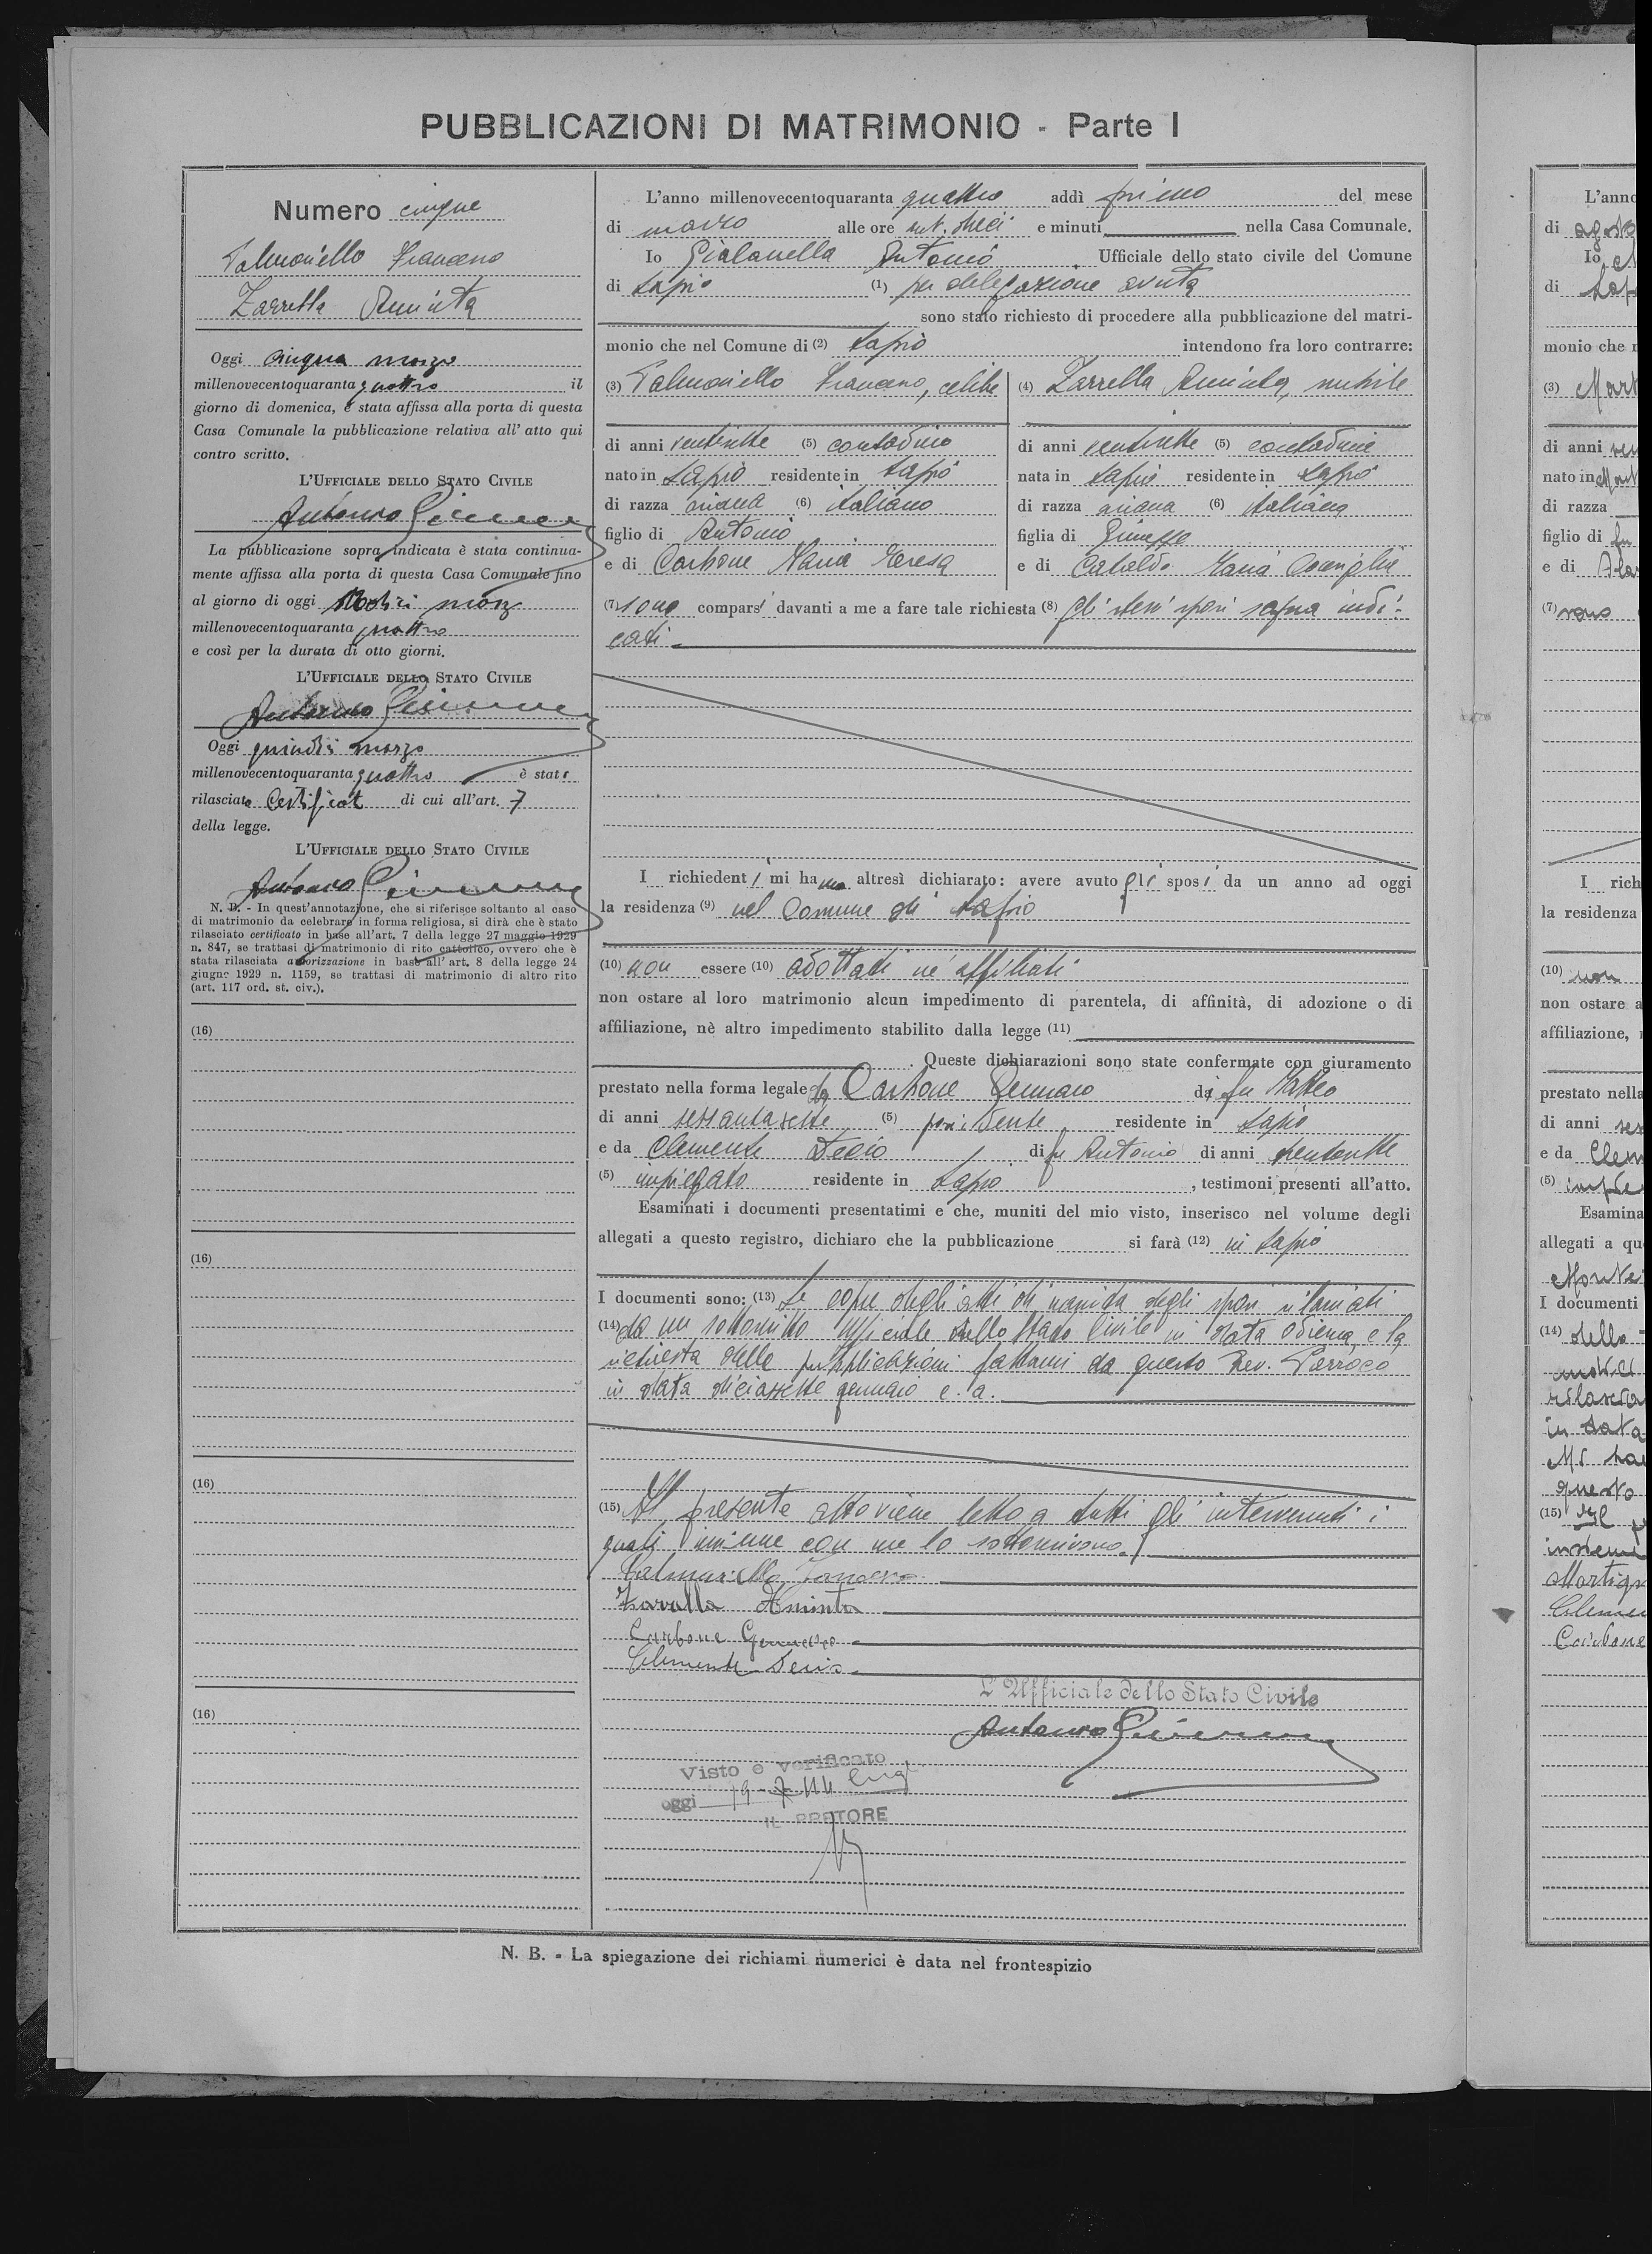 PUBBLICAZIONI DI MATRIMONIO - Parte I
Numero cinque
Palmoriello Francesco
Zarrella Aminta
Oggi cinque marzo
millenovecentoquaranta quattro il
giorno di domenica, è stata affissa alla porta di questa
Casa Comunale la pubblicazione relativa all' atto qui
contro scritto.
L'UFFICIALE DELLO STATO CIVILE
Antonio
La pubblicazione sopra indicata è stata continua-
mente affissa alla porta di questa Casa Comunale fino
al giorno di oggi marzo
millenovecentoquaranta quattro
e così per la durata di otto giorni.
L'UFFICIALE DELLO STATO CIVILE
Antonio
Oggi quindici marzo
millenovecentoquaranta quattro è stato
rilasciato Certificato di cui all'art. 7
della legge.
L'UFFICIALE DELLO STATO CIVILE
Antonio
N. B. - In quest'annotazione, che si riferisce soltanto al caso
di matrimonio da celebrare in forma religiosa, si dirà che è stato
rilasciato certificato in base all'art. 7 della legge 27 maggio 1929
n. 847, se trattasi di matrimonio di rito cattolico, ovvero che è
stata rilasciata autorizzazione in base all' art. 8 della legge 24
giugno 1929 n. 1159, se trattasi di matrimonio di altro rito
(art. 117 ord. st. civ.).
(16)
(16)
(16)
(16)
L'anno millenovecentoquaranta quattro addì primo del mese
di marzo alle ore ant. dieci e minuti nella Casa Comunale.
Io Gialanella Antonio Ufficiale dello stato civile del Comune
di Lapio (1) per delegazione avuta
sono stato richiesto di procedere alla pubblicazione del matri-
monio che nel Comune di (2) Lapio intendono fra loro contrarre:
(3) Palmoriello Francesco, celibe
di anni ventisette (5) contadino
nato in Lapio residente in Lapio
di razza ariana (6) italiano
figlio di Antonio
e di Carbone Maria Teresa
(4) Zarrella Aminta, nubile
di anni ventisette (5) contadina
nata in Lapio residente in Lapio
di razza ariana (6) italiana
figlia di Giuseppe
e di Cataldo Maria
(7) sono comparsi davanti a me a fare tale richiesta (8) gli stessi sposi sopra indi-
cati
I richiedenti mi hanno altresì dichiarato: avere avuto gli sposi da un anno ad oggi
la residenza (9) nel Comune di Lapio
(10) non essere (10) adottati nè affiliati
non ostare al loro matrimonio alcun impedimento di parentela, di affinità, di adozione o di
affiliazione, nè altro impedimento stabilito dalla legge (11)
. Queste dichiarazioni sono state confermate con giuramento
prestato nella forma legale da Carbone Gennaro di fu Matteo
di anni sessantasette (5) possidente residente in Lapio
e da Clemente Decio di fu Antonio di anni trentasette
(5) impiegato residente in Lapio , testimoni presenti all'atto.
Esaminati i documenti presentatimi e che, muniti del mio visto, inserisco nel volume degli
allegati a questo registro, dichiaro che la pubblicazione si farà (12) in Lapio
I documenti sono: (13) Le copie degli atti di nascita degli sposi rilasciati
(14) da me sottoscritto Ufficiale dello Stato Civile in data odierna, e la
richiesta delle pubblicazioni fattami da questo Rev. Parroco
in data diciassette gennaio c. a.
(15) Il presente atto viene letto a tutti gli intervenuti i
quali insieme con me lo sottoscrivono.
Palmoriello
Zarrella Aminta
Carbone Gennaro
Clemente Decio
L'Ufficiale dello Stato Civile
Antonio
Visto e verificato
oggi
IL PRETORE
N. B. - La spiegazione dei richiami numerici è data nel frontespizio
L'anno
di agosto
Io
di
monio che
(3)
di anni
nato in
di razza
figlio di fu
e di
(7)
I rich
la residenza
(10) non
non ostare a
affiliazione,
prestato nella
di anni
e da Clem
(5)
Esamina
allegati a qu
I documenti
(14) della
rilascia
in data
questo
(15)
Carbone